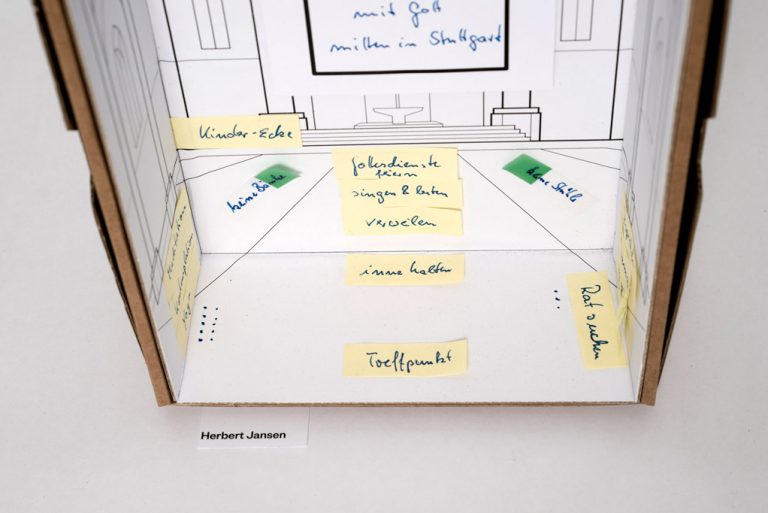 mit Gott
mitten in Stuttgart
Kinder-Ecke
Gottesdienste
feiern
singen & beten
verweilen
keine Bänke
keine Stühle
inne halten
Rat suchen
Treffpunkt
Herbert Jansen